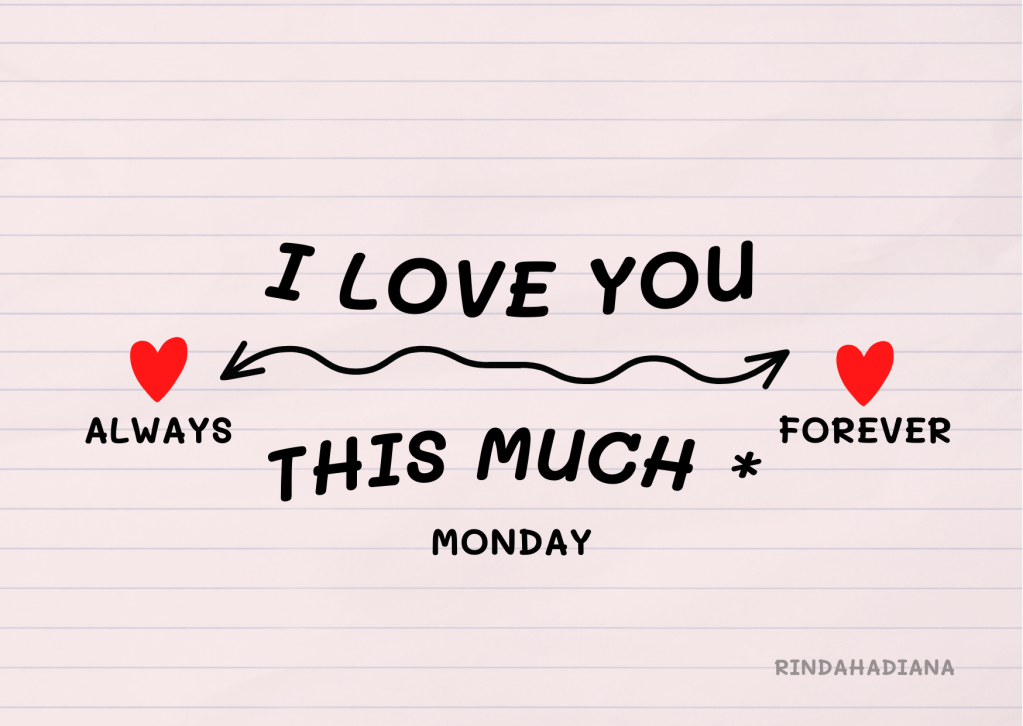 I LOVE YOU
ALWAYS
FOREVER
THIS MUCH *
MONDAY
RINDAHADIANA